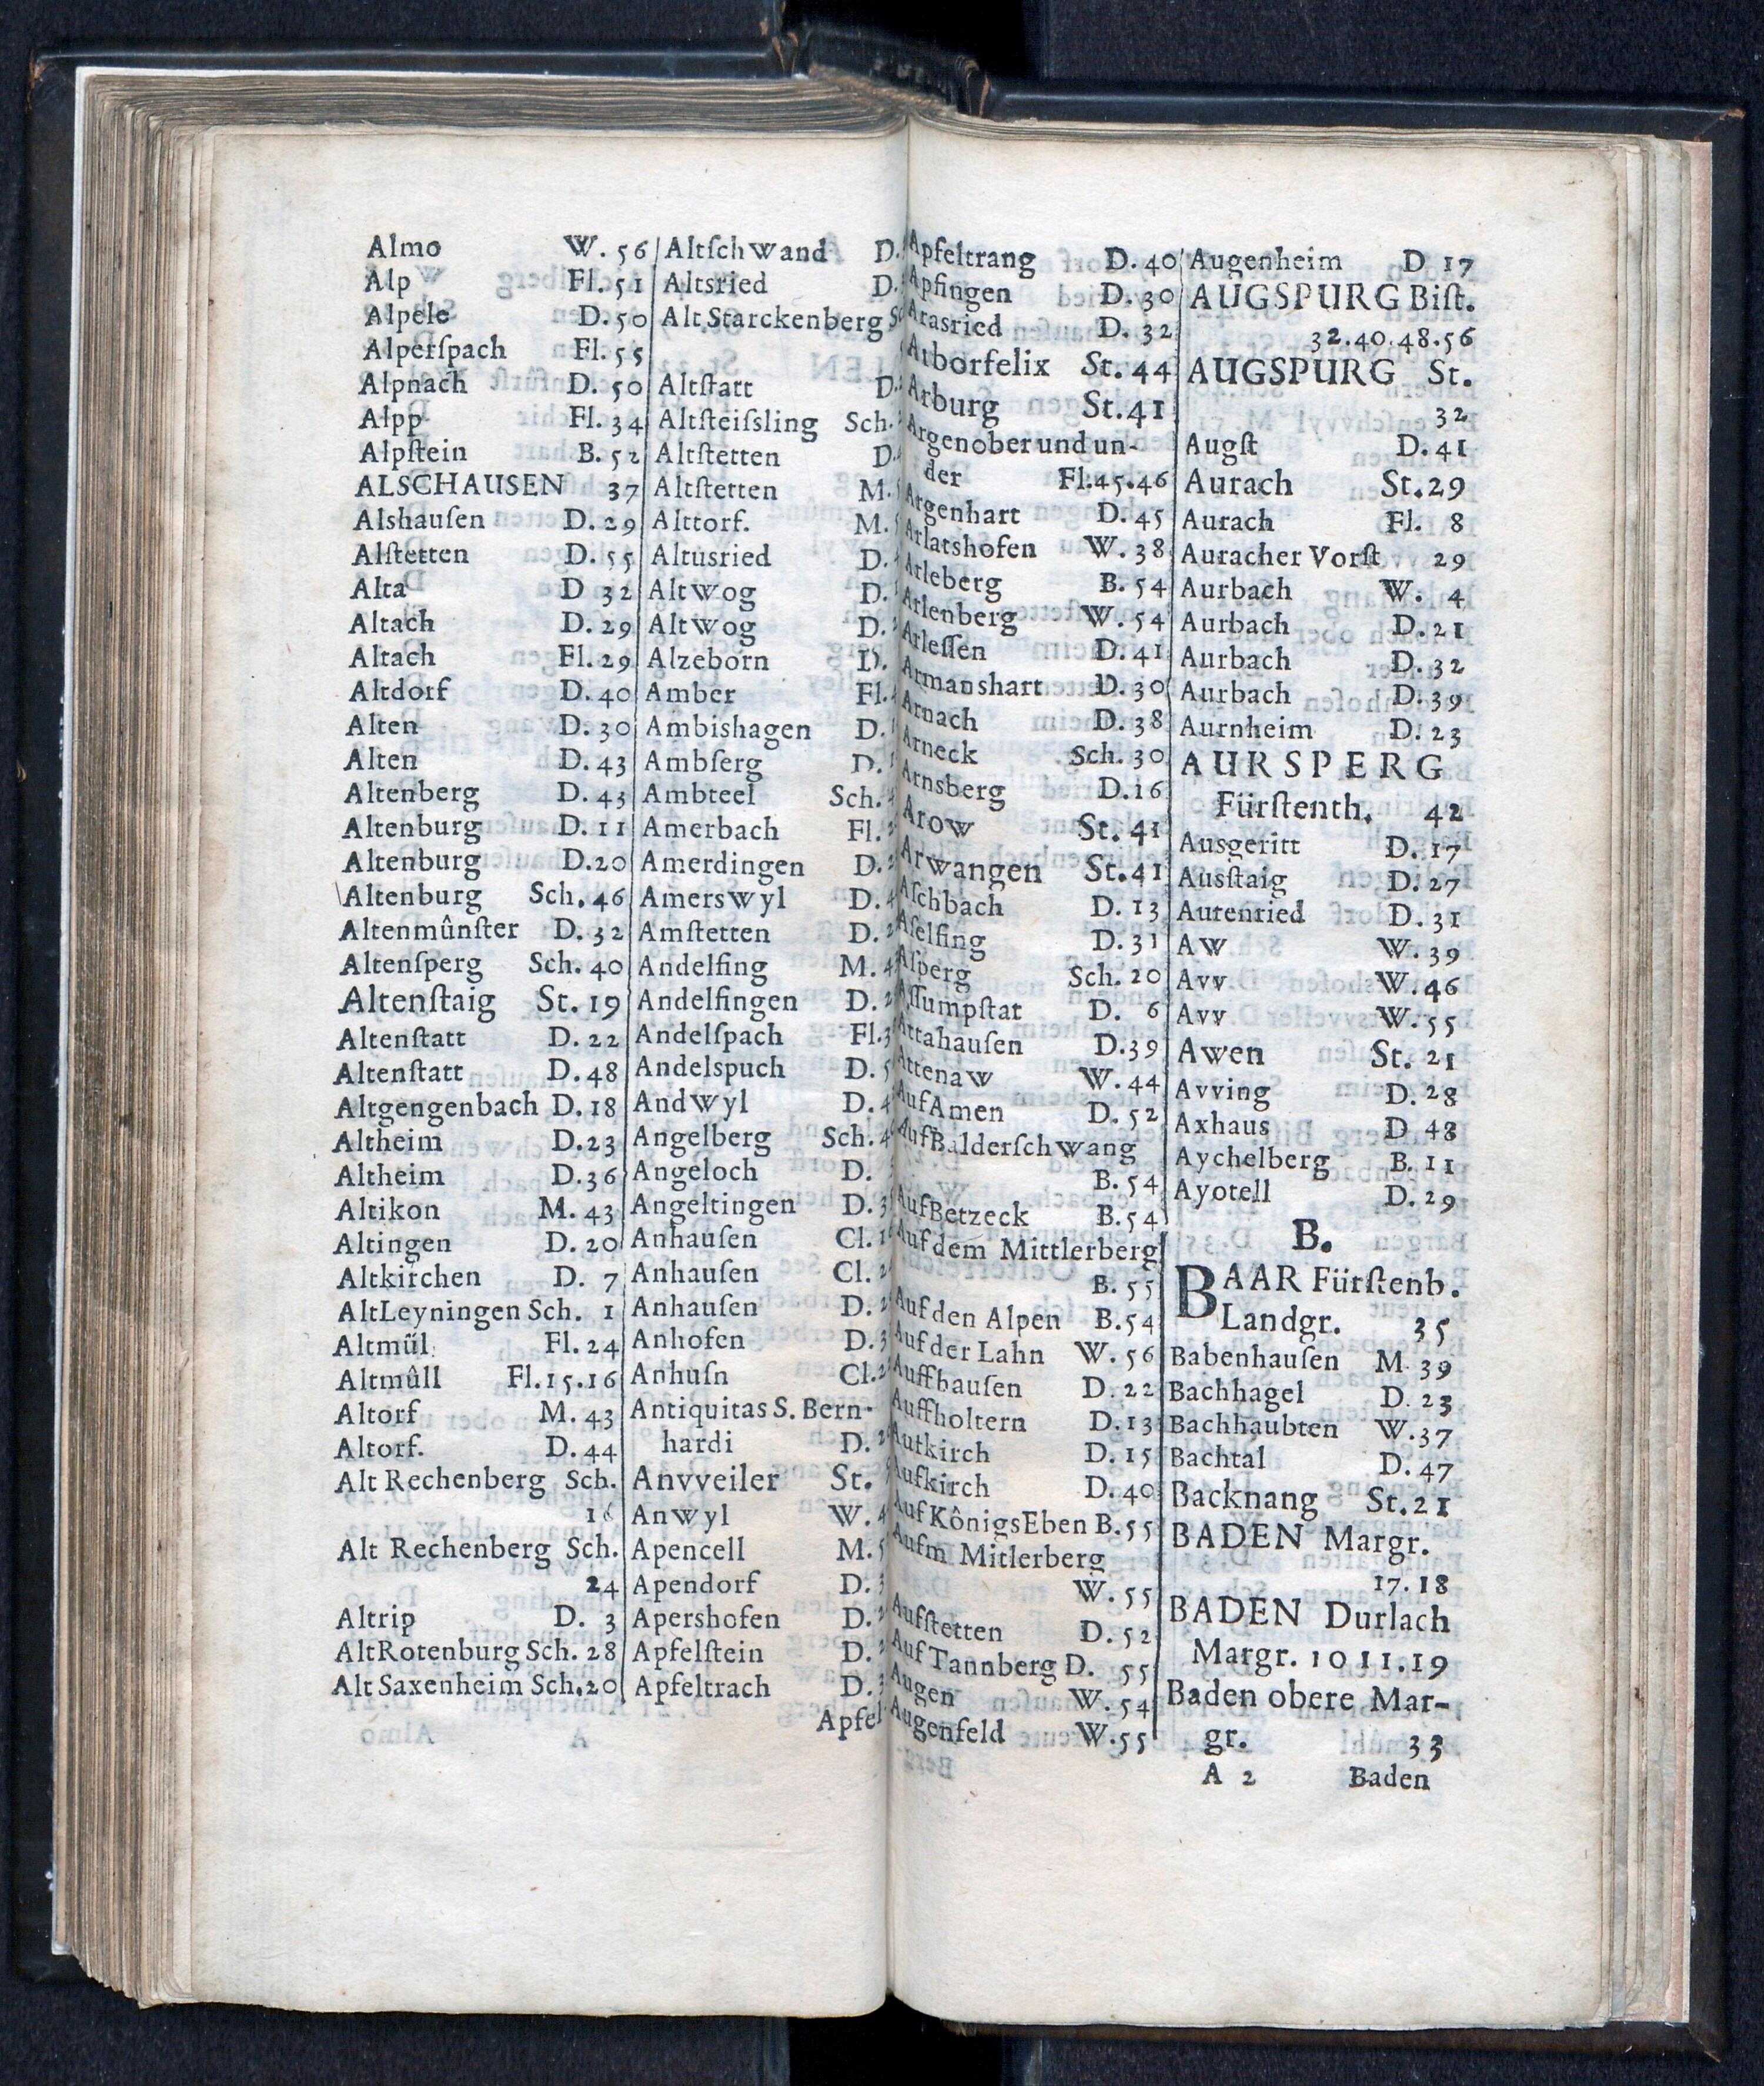 Almo W. 56
Alp Fl. 51
Alpele D. 50
Alperſpach Fl. 55
Alpnach D. 50
Alpp Fl. 34
Alpſtein B. 52
ALSCHAUSEN 37
Alshauſen D. 29
Alſtetten D. 55
Alta D 32
Altach D. 29
Altach Fl. 29
Altdorf D. 40
Alten D. 30
Alten D. 43
Altenberg D. 43
Altenburg D. 11
Altenburg D. 20
Altenburg Sch. 46
Altenmûnſter D. 32
Altenſperg Sch. 40
Altenſtaig St. 19
Altenſtatt D. 22
Altenſtatt D. 48
Altgengenbach D. 18
Altheim D. 23
Altheim D. 36
Altikon M. 43
Altingen D. 20
Altkirchen D. 7
AltLeyningen Sch. 1
Altmûl Fl. 24
Altmûll Fl. 15.16
Altorf M. 43
Altorf. D. 44
Alt Rechenberg Sch.
Alt Rechenberg Sch.
24
Altrip D. 3
AltRotenburg Sch. 28
Alt Saxenheim Sch. 20
Altſchwand D.
Altsried D.
Alt Starckenberg
Altſtatt D.
Altſteiſsling Sch.
Altſtetten D.
Altſtetten M.
Alttorf. M.
Altusried D.
Altwog D.
Altwog D.
Alzeborn D.
Amber Fl.
Ambishagen D.
Ambſerg D.
Ambteel Sch.
Amerbach Fl.
Amerdingen D.
Amerswyl D.
Amſtetten D.
Andelfing M.
Andelfingen D.
Andelſpach Fl.
Andelspuch D.
Andwyl D.
Angelberg Sch.
Angeloch D.
Angeltingen D.
Anhauſen Cl.
Anhauſen Cl.
Anhauſen D.
Anhofen D.
Anhuſn Cl.
Antiquitas S. Bern-
hardi D.
Anvveiler St.
Anwyl W.
Apencell M.
Apendorf D.
Apershofen D.
Apfelſtein D.
Apfeltrach D.
Apfel
Apfeltrang D. 40
Apfingen D. 30
Arasried D. 32
Arborfelix St. 44
Arburg St. 41
Argen ober und un-
der Fl. 45.46
Argenhart D. 45
Arlatshofen W. 38
Arleberg B. 54
Arlenberg W. 54
Arleſſen D. 41
Armanshart D. 30
Arnach D. 38
Arneck Sch. 30
Arnsberg D. 16
Arow St. 41
Arwangen St. 41
Aſchbach D. 13
Aſelfing D. 31
Aſperg Sch. 20
Aſſumpſtat D. 6
Attahauſen D. 39
Attenaw W. 44
Auf Amen D. 52
Auf Balderſchwang
B. 54
Auf Betzeck B. 54
Auf dem Mittlerberg
B. 55
Auf den Alpen B. 54
Auf der Lahn W. 56
Auffhauſen D. 22
Auffholtern D. 13
Aufkirch D. 15
Aufkirch D. 40
Auf KônigsEben B. 55
Aufm Mitlerberg
W. 55
Aufſtetten D. 52
Auf Tannberg D. 55
Augen W. 54
Augenfeld W. 55
Augenheim D 17
AUGSPURG Biſt.
32.40.48.56
AUGSPURG St.
32
Augſt D. 41
Aurach St. 29
Aurach Fl. 8
Auracher Vorſt 29
Aurbach W. 4
Aurbach D. 21
Aurbach D. 32
Aurbach D. 39
Aurnheim D. 23
AURSPERG
Fürſtenth. 42
Ausgeritt D. 17
Ausſtaig D. 27
Autenried D. 31
AW W. 39
Avv W. 46
Avv W. 55
Awen St. 21
Avving D. 28
Axhaus D 48
Aychelberg B. 11
Ayotell D. 29
B.
BAAR Fürſtenb.
Landgr. 35
Babenhauſen M 39
Bachhagel D. 23
Bachhaubten W. 37
Bachtal D. 47
Backnang St. 21
BADEN Margr.
17.18
BADEN Durlach
Margr. 10 11.19
Baden obere Mar-
gr. 33
A 2 Baden